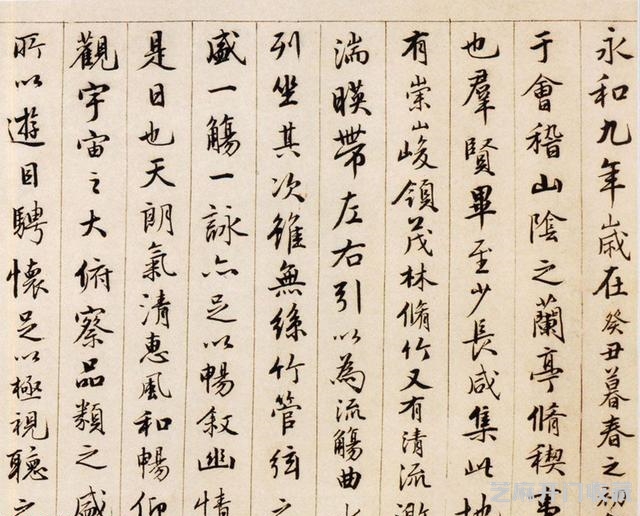 永和九年歲在癸丑暮春之初
于會稽山陰之蘭亭脩稧事
也羣賢畢至少長咸集此地
有崇山峻領茂林脩竹又有清流激
湍暎帶左右引以為流觴曲
列坐其次雖無絲竹管弦之
盛一觴一詠亦足以暢敘幽情
是日也天朗氣清惠風和暢仰
觀宇宙之大俯察品類之盛
所以遊目騁懷足以極視聽之